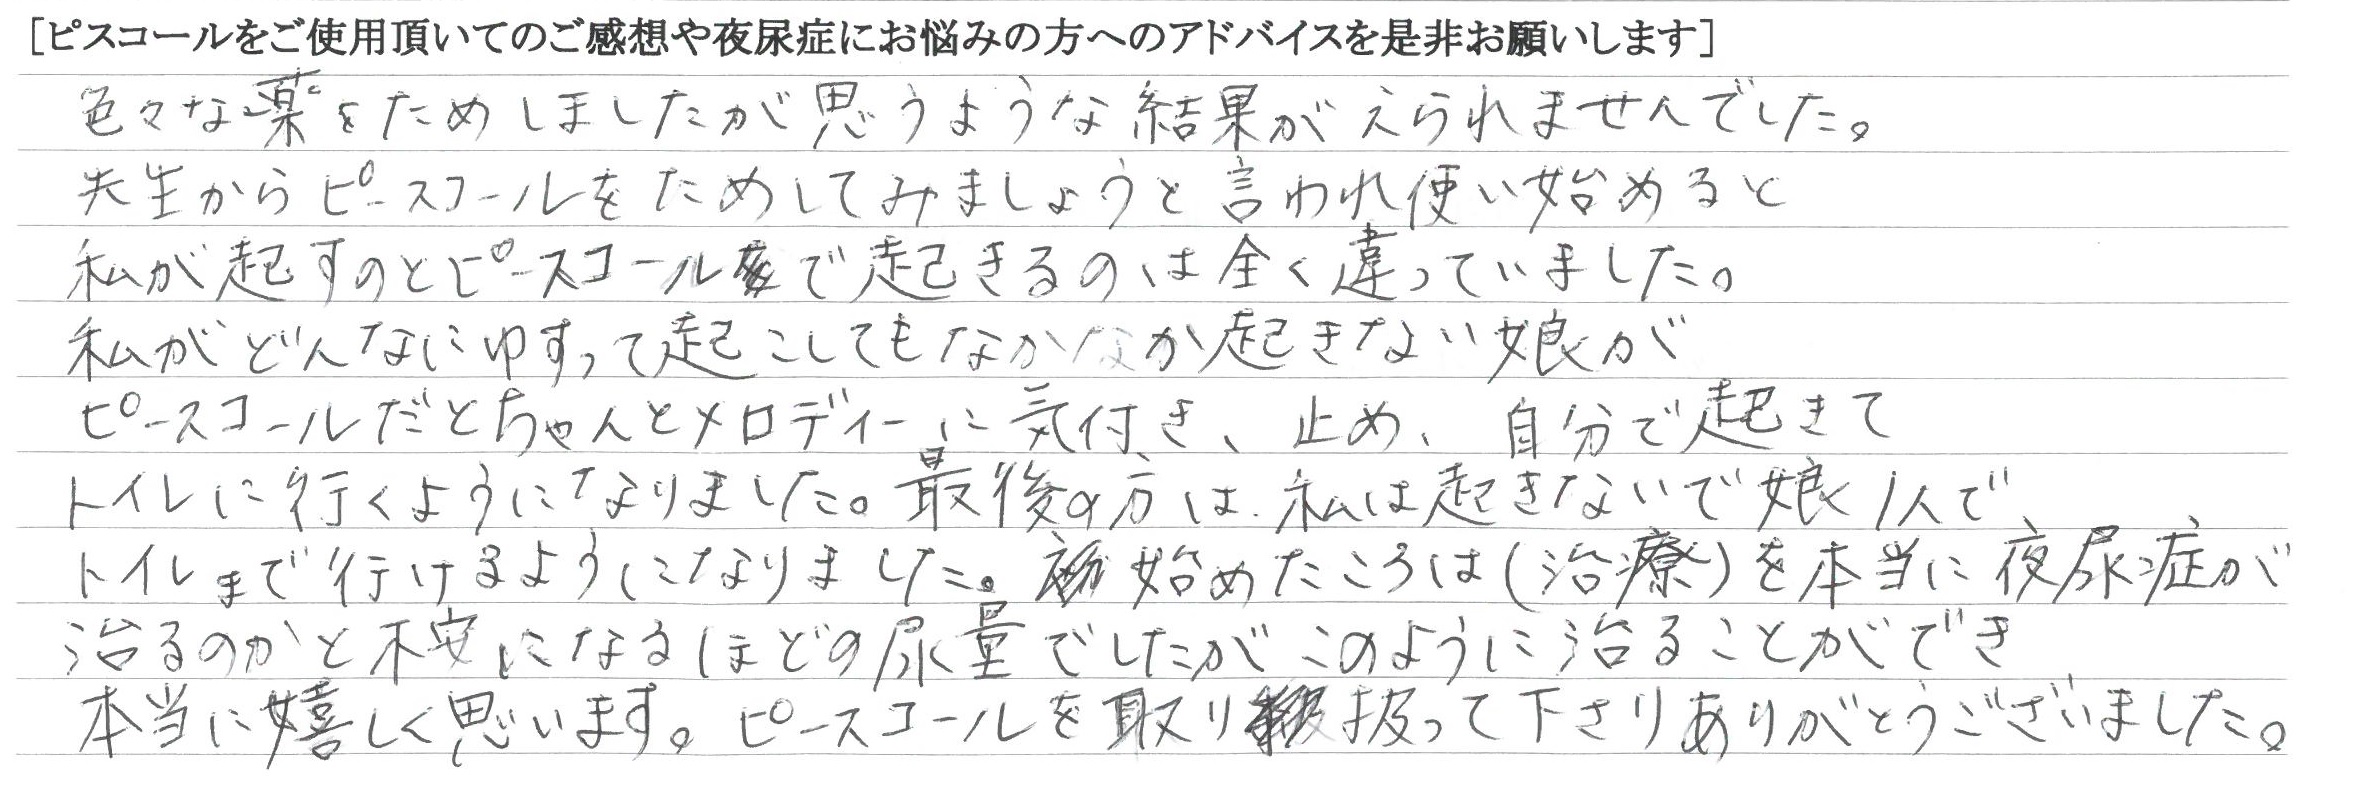 [ピスコールをご使用頂いてのご感想や夜尿症にお悩みの方へのアドバイスを是非お願いします]
色々な薬をためしましたが思うような結果がえられませんでした。
先生からピースコールをためしてみましょうと言われ使い始めると
私が起すのとピースコールで起きるのは全く違っていました。
私がどんなにゆすって起こしてもなかなか起きない娘が
ピースコールだとちゃんとメロディーに気付き、止め、自分で起きて
トイレに行くようになりました。最後の方は、私は起きないで娘1人で
トイレまで行けるようになりました。始めたころは(治療)を本当に夜尿症が
治るのかと不安になるほどの尿量でしたがこのように治ることができ
本当に嬉しく思います。ピースコールを取り扱って下さりありがとうございました。